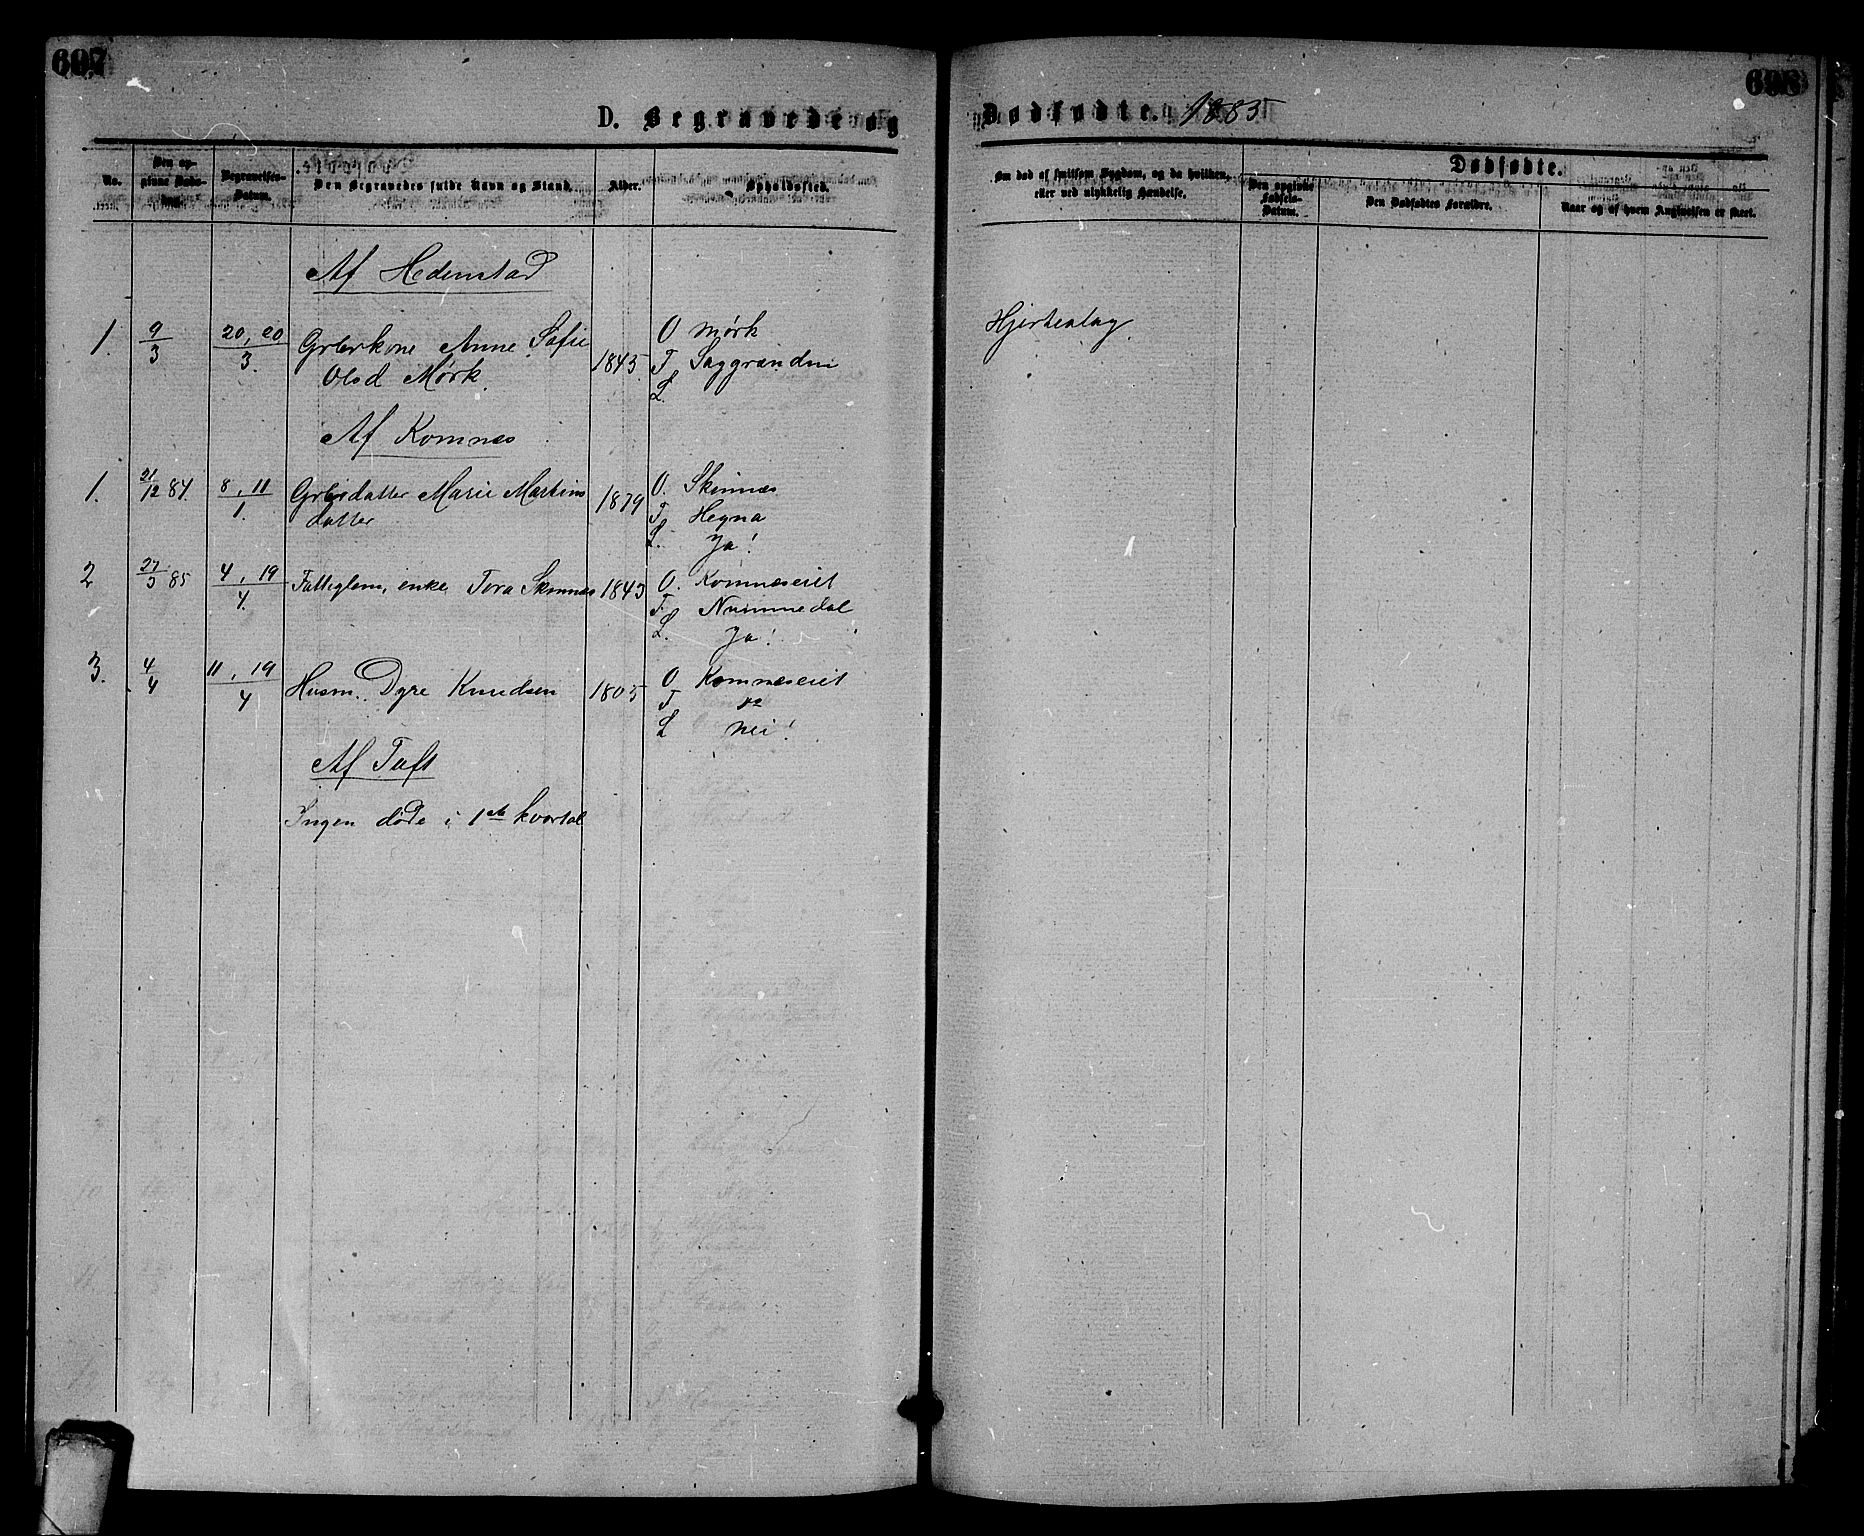 607
608
D. Begravede og Dødfødte. 1885
No.
Den opgivne Dødsdag.
Begravelses-Datum.
Den Begravedes fulde Navn og Stand.
Alder.
Opholdssted.
Om død af smitsom Sygdom, og da hvilken, eller ved ulykkelig Hændelse.
Dødfødte.
Den opgivne Fødsels-Datum.
Den Dødfødtes Forældre.
Naar og af hvem Angivelsen er skeet.
Af Hedenstad
1. 9/3 20, 20/3. Grbrkone Anne Sofie 1845 O Mørk Hjerteslag
Olsd Mørk. F Saggrenden
L.
Af Komnes
1. 21/12 84. 8, 11/1. Grbrdatter Marie Martins 1879 O. Skinnes
datter F. Hegna
L. Ja!
2 27/3 85 4, 19/4. Fattiglem, enke Tora Skinnes 1843 O. Komneseiet
F. Nummedal
L. Ja!
3. 4/4 11, 19/4 Husm. Dyre Knudsen 1805 O. Komneseiet
F do
L nei!
Af Tuft
Ingen døde i 1ste kvartal